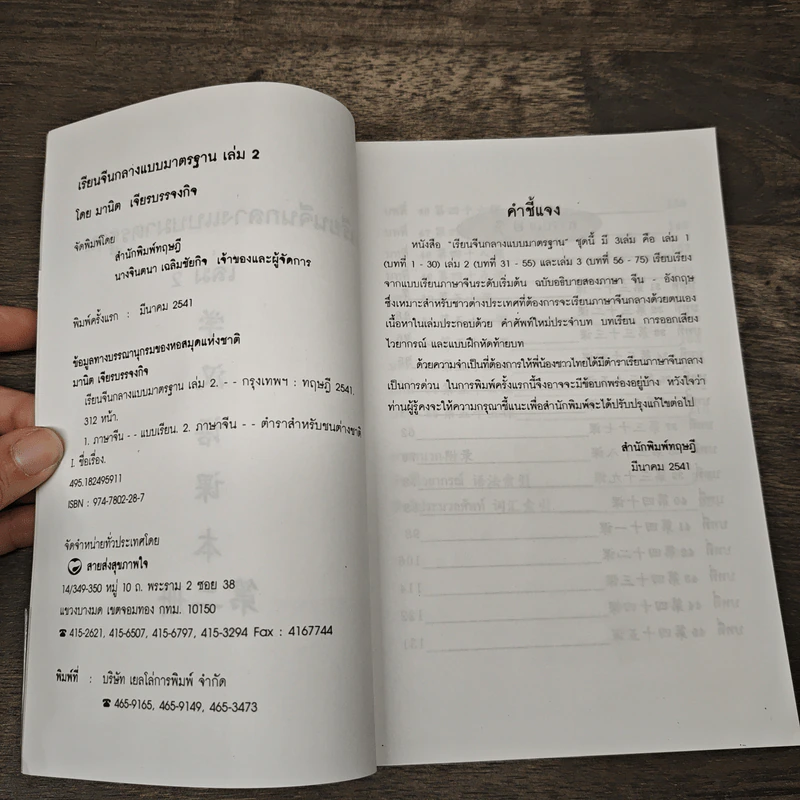 เรียนจีนกลางแบบมาตรฐาน เล่ม 2
โดย มานิต เจียรบรรจงกิจ
จัดพิมพ์โดย
สำนักพิมพ์ทฤษฎี
นางจินตนา เฉลิมชัยกิจ เจ้าของและผู้จัดการ
พิมพ์ครั้งแรก : มีนาคม 2541
ข้อมูลทางบรรณานุกรมของหอสมุดแห่งชาติ
มานิต เจียรบรรจงกิจ
เรียนจีนกลางแบบมาตรฐาน เล่ม 2. - - กรุงเทพฯ : ทฤษฎี 2541.
312 หน้า.
1. ภาษาจีน - - แบบเรียน. 2. ภาษาจีน - - ตำราสำหรับชนต่างชาติ
I. ชื่อเรื่อง.
495.182495911
ISBN : 974-7802-28-7
จัดจำหน่ายทั่วประเทศโดย
สายส่งสุขภาพใจ
14/349-350 หมู่ 10 ถ. พระราม 2 ซอย 38
แขวงบางมด เขตจอมทอง กทม. 10150
☎ 415-2621, 415-6507, 415-6797, 415-3294 Fax : 4167744
พิมพ์ที่ : บริษัท เยลโล่การพิมพ์ จำกัด
☎ 465-9165, 465-9149, 465-3473
คำชี้แจง
หนังสือ "เรียนจีนกลางแบบมาตรฐาน" ชุดนี้ มี 3เล่ม คือ เล่ม 1
(บทที่ 1 - 30) เล่ม 2 (บทที่ 31 - 55) และเล่ม 3 (บทที่ 56 - 75) เรียบเรียง
จากแบบเรียนภาษาจีนระดับเริ่มต้น ฉบับอธิบายสองภาษา จีน - อังกฤษ
ซึ่งเหมาะสำหรับชาวต่างประเทศที่ต้องการจะเรียนภาษาจีนกลางด้วยตนเอง
เนื้อหาในเล่มประกอบด้วย คำศัพท์ใหม่ประจำบท บทเรียน การออกเสียง
ไวยากรณ์ และแบบฝึกหัดท้ายบท
ด้วยความจำเป็นที่ต้องการให้พี่น้องชาวไทยได้มีตำราเรียนภาษาจีนกลาง
เป็นการด่วน ในการพิมพ์ครั้งแรกนี้จึงอาจจะมีข้อบกพร่องอยู่บ้าง หวังใจว่า
ท่านผู้รู้คงจะให้ความกรุณาชี้แนะเพื่อสำนักพิมพ์จะได้ปรับปรุงแก้ไขต่อไป
สำนักพิมพ์ทฤษฎี
มีนาคม 2541